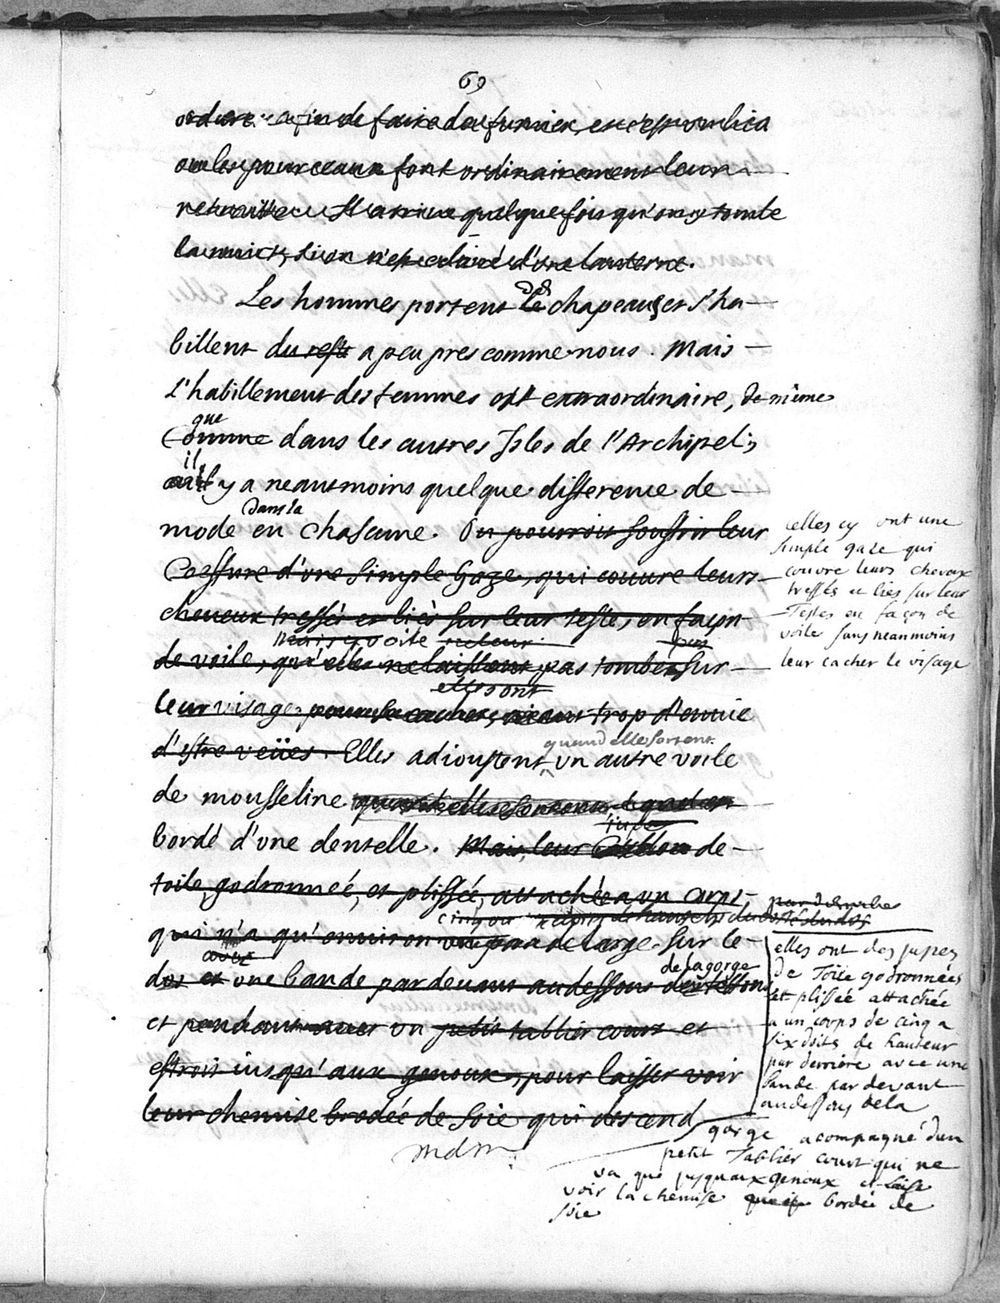 69
ordure afin de faire du fumier, et c'est un lieu
ou les pourceaux font ordinairement leur
retraitte. Il arrive quelque fois qu'on y tombe
la nuict, si on n'est eclairé d'une lanterne.
Les hommes portent des chapeaux et s'ha-
billent du reste a peu pres comme nous. Mais
L'habillement des femmes est extraordinaire, de même
que
Comme dans les autres Isles de l'Archipel;
il
y a neautmoins quelque difference de
dans la
mode en chascune. On pourroit souffrir leur
Coeffure d'une simple Gaze, qui couvre leurs
cheveux tressés et liés sur leur teste, en façon
voile
de voile, qu'elles ne laissent pas tomber sur
elles ont
leur visage pour se cacher, trop d'envie
d'estre veües. Elles adioustent un autre voile
quand elle sortent
de mousseline
bordé d'une dentelle. Mais leur de
jupe
toile godronneé, et plissée, attachée a un corps
qui n'a qu'environ de large sur le
cinq ou
avec
dos et une bande par devant audessous
de la gorge
et pendant un petit tablier court et
estroit iusqu'aux genoux, pour laisser voir
leur chemise brodée de soie qui descend
mdm
celles cy ont une
simple gaze qui
couvre leurs chevaux
tressés et liés sur leur
Testes en façon de
voile sans neanmoins
leur cacher le visage
par derriere
elles ont des jupes
de Toile godronnées
et plissée attachée
a un corps de cinq a
six doits de hauteur
par derriere avec une
bande par devant
audessous de la
gorge acompagné d'un
petit Tablier court qui ne
va que jusquaux genoux et laisse
voir la chemise bordée de
soie